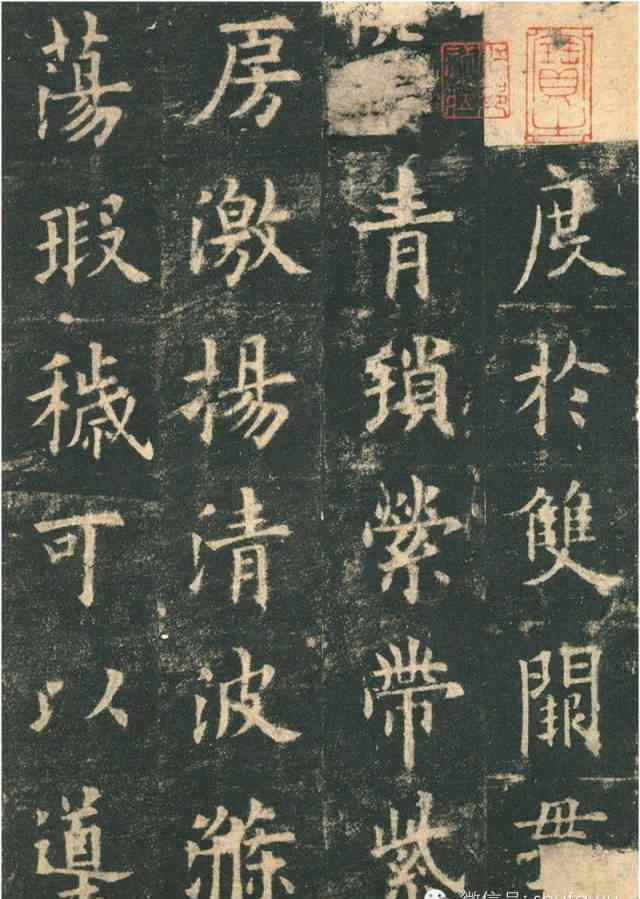 度於雙闕貫
青瑣縈帶紫
房激揚清波滌
蕩瑕穢可以導
微信号: